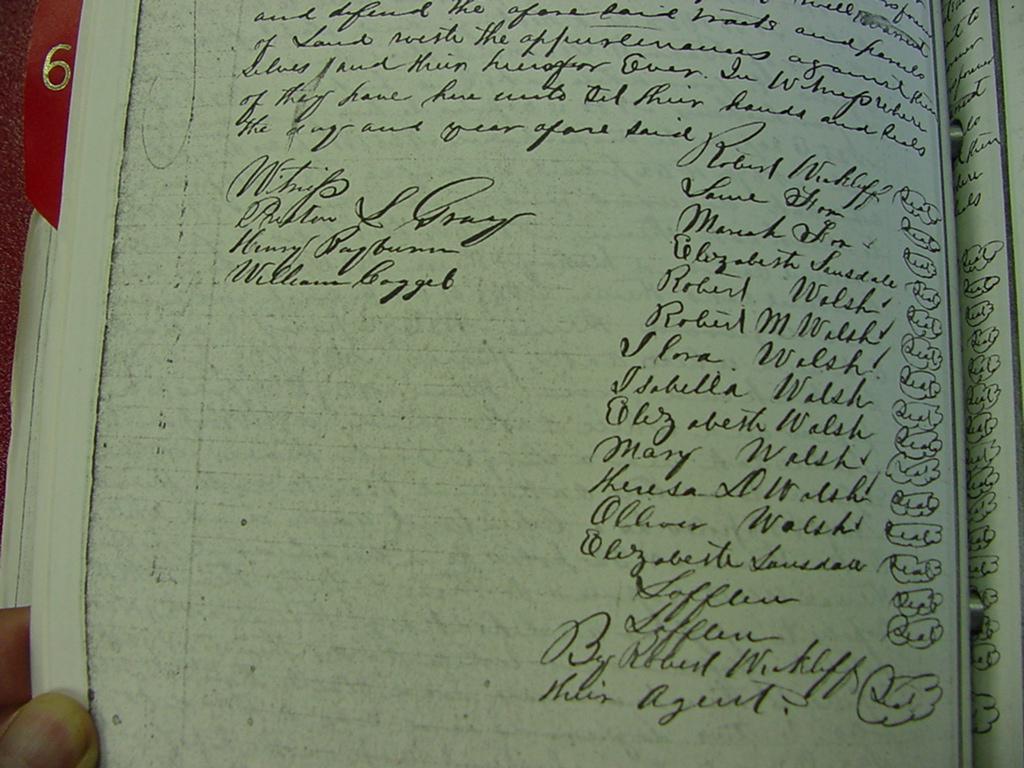 6
and defend the afore said tracts and parcels
of Land with the appurtenances against them
selves and their heirs for Ever. In Witness where
of they have here unto set their hands and seals
the day and year afore said
Robert Wickliff Seal
Witness
S Gray
Henry Rayburn
William Coggel
Fox Seal
Mariah Fox Seal
Elizabeth Lonsdale Seal
Robert Walsh Seal
Robert M Walsh Seal
Flora Walsh Seal
Isabella Walsh Seal
Elizabeth Walsh Seal
Mary Walsh Seal
Theresa D Walsh Seal
Olliver Walsh Seal
Elizabeth Lonsdale Seal
Lofflen Seal
Lofflen Seal
By Robert Wickliff
their Agent. Seal